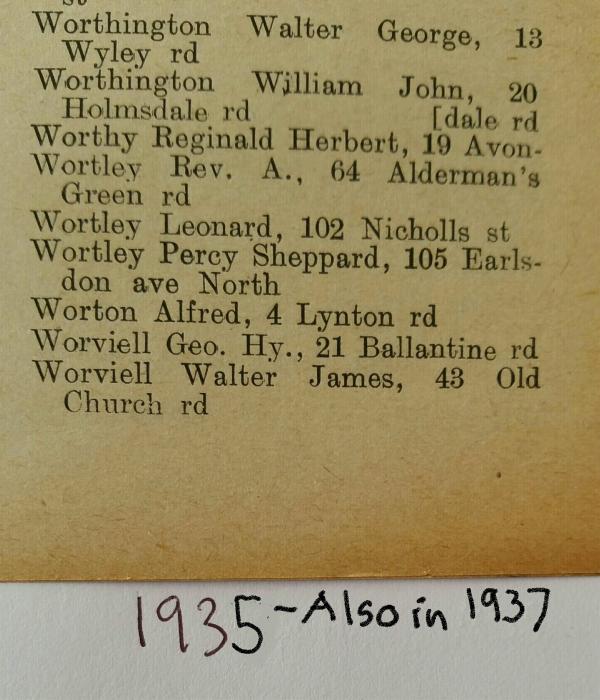 Worthington Walter George, 13
Wyley rd
Worthington William John, 20
Holmsdale rd [dale rd
Worthy Reginald Herbert, 19 Avon-
Wortley Rev. A., 64 Alderman's
Green rd
Wortley Leonard, 102 Nicholls st
Wortley Percy Sheppard, 105 Earls-
don ave North
Worton Alfred, 4 Lynton rd
Worviell Geo. Hy., 21 Ballantine rd
Worviell Walter James, 43 Old
Church rd
1935-Also in 1937